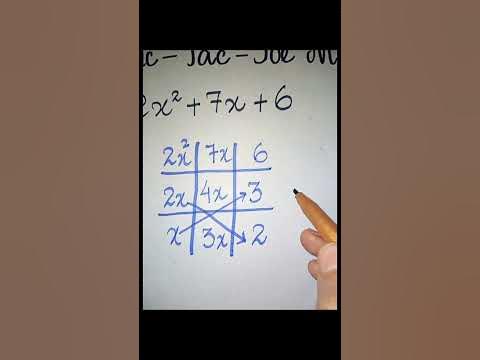 - Tac - Toe
2x² + 7x + 6
2x² 7x 6
2x 4x 3
x 3x 2